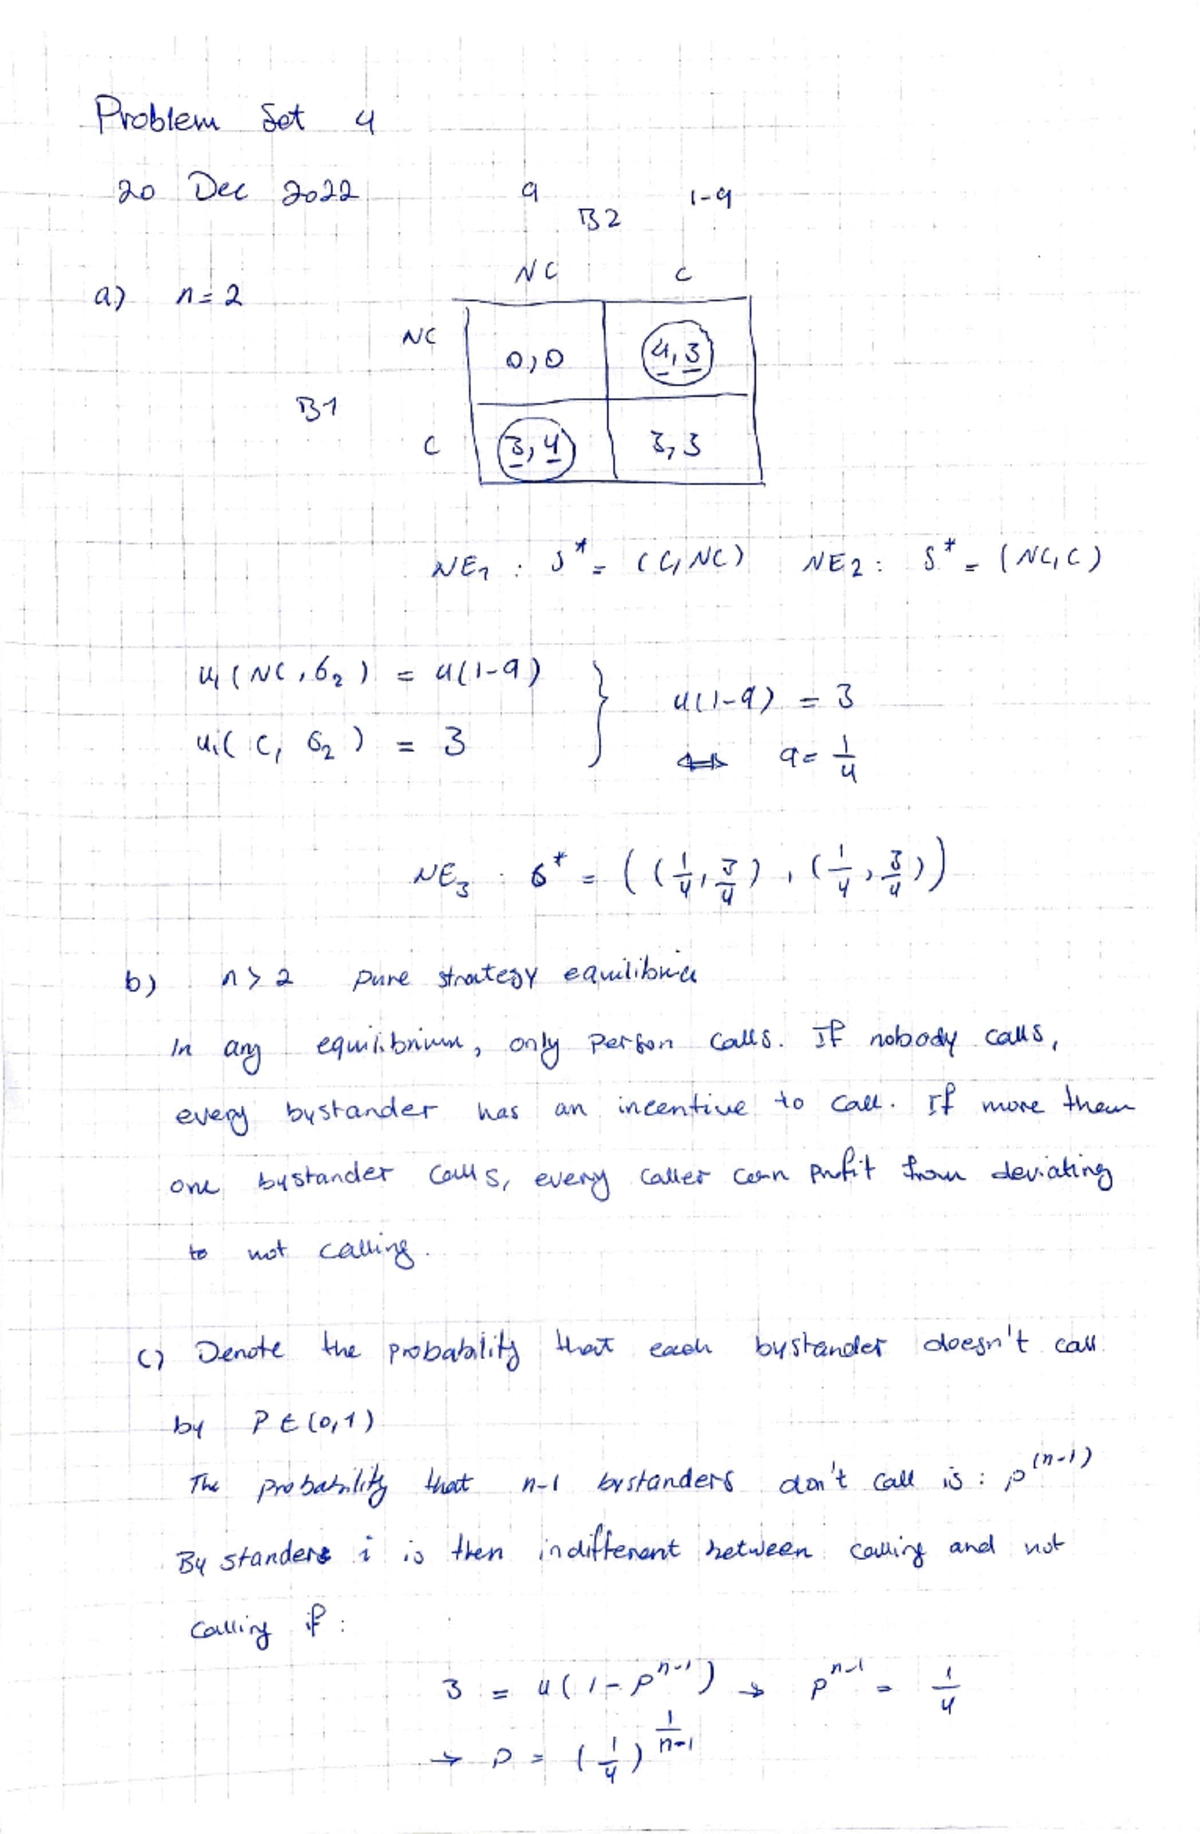 Problem Set 4
20 Dec 2022
q 1-q
B2
NC C
a) n = 2
NC 0,0 4,3
B1
C 3,4 3,3
NE1 : S* = (C, NC) NE2 : S* = (NC, C)
u1 (NC, σ2) = 4(1-q)
u1 (C, σ2) = 3
4(1-q) = 3
⟺ q = 1/4
NE3 : σ* = ((1/4, 3/4), (1/4, 3/4))
b) n > 2 pure strategy equilibria
In any equilibrium, only person calls. If nobody calls,
every bystander has an incentive to call. If more than
one bystander calls, every caller can profit from deviating
to not calling.
c) Denote the probability that each bystander doesn't call
by P ∈ (0,1)
The probability that n-1 bystanders don't call is : p^(n-1)
By standers i is then indifferent between calling and not
calling if :
3 = 4(1-p^n-1) → p^n-1 = 1/4
→ p = (1/4)^1/n-1